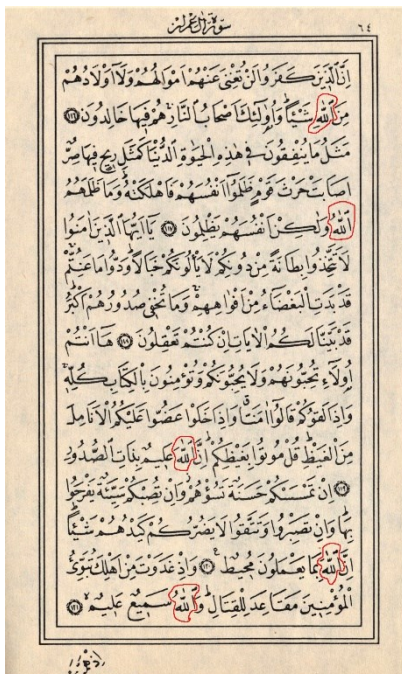 سورة آل عمران ٦٤
اِنَّ الَّذِينَ كَفَرُوا لَنْ تُغْنِيَ عَنْهُمْ اَمْوَالُهُمْ وَلَا اَوْلَادُهُمْ
مِنَ اللّٰهِ شَيْئًا وَاُولٰئِكَ اَصْحَابُ النَّارِ هُمْ فِيهَا خَالِدُونَ ﴿١١٦﴾
مَثَلُ مَا يُنْفِقُونَ فِي هٰذِهِ الْحَيٰوةِ الدُّنْيَا كَمَثَلِ رِيحٍ فِيهَا صِرٌّ
اَصَابَتْ حَرْثَ قَوْمٍ ظَلَمُوا اَنْفُسَهُمْ فَاَهْلَكَتْهُ وَمَا ظَلَمَهُمُ
اللّٰهُ وَلٰكِنْ اَنْفُسَهُمْ يَظْلِمُونَ ﴿١١٧﴾ يَا اَيُّهَا الَّذِينَ اٰمَنُوا
لَا تَتَّخِذُوا بِطَانَةً مِنْ دُونِكُمْ لَا يَأْلُونَكُمْ خَبَالًا وَدُّوا مَا عَنِتُّمْ
قَدْ بَدَتِ الْبَغْضَاءُ مِنْ اَفْوَاهِهِمْ وَمَا تُخْفِي صُدُورُهُمْ اَكْبَرُ
قَدْ بَيَّنَّا لَكُمُ الْاٰيَاتِ اِنْ كُنْتُمْ تَعْقِلُونَ ﴿١١٨﴾ هَا اَنْتُمْ
اُولَاءِ تُحِبُّونَهُمْ وَلَا يُحِبُّونَكُمْ وَتُؤْمِنُونَ بِالْكِتَابِ كُلِّهِ
وَاِذَا لَقُوكُمْ قَالُوا اٰمَنَّا وَاِذَا خَلَوْا عَضُّوا عَلَيْكُمُ الْاَنَامِلَ
مِنَ الْغَيْظِ قُلْ مُوتُوا بِغَيْظِكُمْ اِنَّ اللّٰهَ عَلِيمٌ بِذَاتِ الصُّدُورِ
﴿١١٩﴾ اِنْ تَمْسَسْكُمْ حَسَنَةٌ تَسُؤْهُمْ وَاِنْ تُصِبْكُمْ سَيِّئَةٌ يَفْرَحُوا
بِهَا وَاِنْ تَصْبِرُوا وَتَتَّقُوا لَا يَضُرُّكُمْ كَيْدُهُمْ شَيْئًا
اِنَّ اللّٰهَ بِمَا يَعْمَلُونَ مُحِيطٌ ﴿١٢٠﴾ وَاِذْ غَدَوْتَ مِنْ اَهْلِكَ تُبَوِّئُ
الْمُؤْمِنِينَ مَقَاعِدَ لِلْقِتَالِ وَاللّٰهُ سَمِيعٌ عَلِيمٌ ﴿١٢١﴾